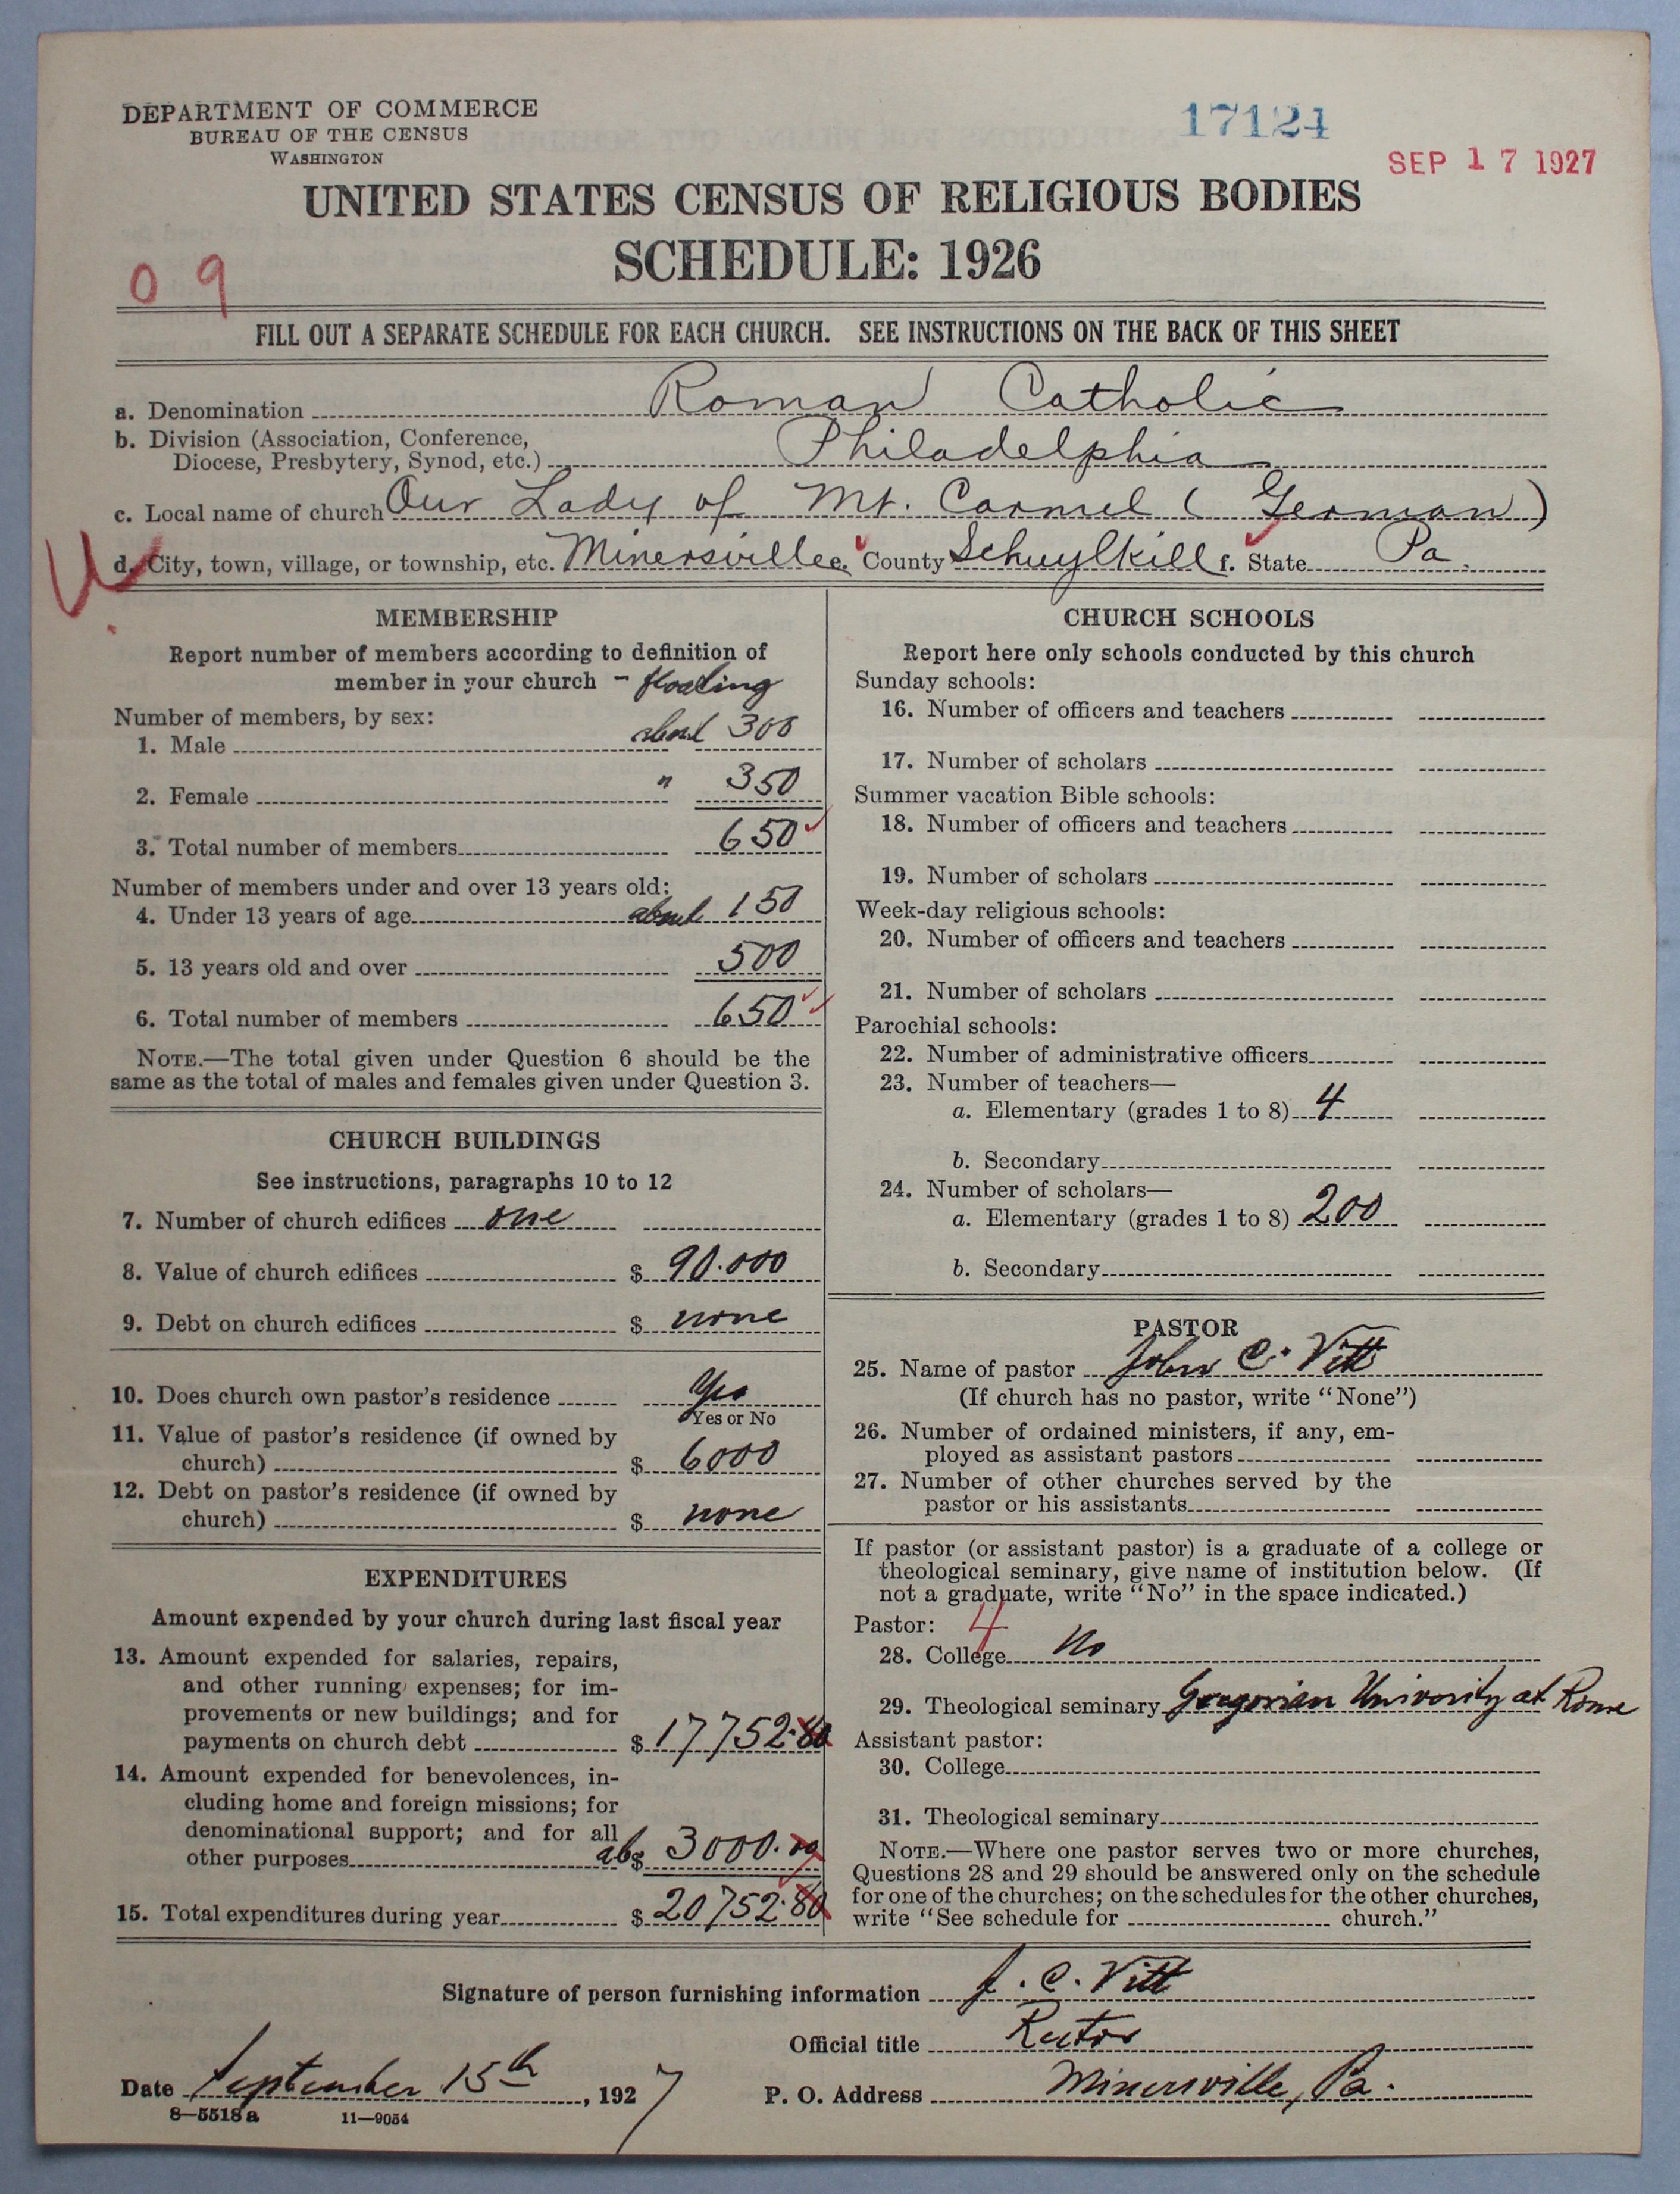 DEPARTMENT OF COMMERCE
BUREAU OF THE CENSUS
WASHINGTON
17124
SEP 17 1927
UNITED STATES CENSUS OF RELIGIOUS BODIES
SCHEDULE: 1926
09
FILL OUT A SEPARATE SCHEDULE FOR EACH CHURCH. SEE INSTRUCTIONS ON THE BACK OF THIS SHEET
a. Denomination Roman Catholic
b. Division (Association, Conference,
Diocese, Presbytery, Synod, etc.) Philadelphia
c. Local name of church Our Lady of Mt. Carmel (German)
d. City, town, village, or township, etc. Minersville e. County Schuylkill f. State Pa.
MEMBERSHIP
Report number of members according to definition of
member in your church - floating
Number of members, by sex:
1. Male about 300
2. Female " 350
3. Total number of members 650
Number of members under and over 13 years old:
4. Under 13 years of age about 150
5. 13 years old and over 500
6. Total number of members 650
NOTE.—The total given under Question 6 should be the
same as the total of males and females given under Question 3.
CHURCH BUILDINGS
See instructions, paragraphs 10 to 12
7. Number of church edifices one
8. Value of church edifices $ 90.000
9. Debt on church edifices $ none
10. Does church own pastor's residence Yes
Yes or No
11. Value of pastor's residence (if owned by
church) $ 6000
12. Debt on pastor's residence (if owned by
church) $ none
EXPENDITURES
Amount expended by your church during last fiscal year
13. Amount expended for salaries, repairs,
and other running expenses; for im-
provements or new buildings; and for
payments on church debt $ 17752.80
14. Amount expended for benevolences, in-
cluding home and foreign missions; for
denominational support; and for all
other purposes ab $ 3000.00
15. Total expenditures during year $ 20752.80
CHURCH SCHOOLS
Report here only schools conducted by this church
Sunday schools:
16. Number of officers and teachers
17. Number of scholars
Summer vacation Bible schools:
18. Number of officers and teachers
19. Number of scholars
Week-day religious schools:
20. Number of officers and teachers
21. Number of scholars
Parochial schools:
22. Number of administrative officers
23. Number of teachers—
a. Elementary (grades 1 to 8) 4
b. Secondary
24. Number of scholars—
a. Elementary (grades 1 to 8) 200
b. Secondary
PASTOR
25. Name of pastor John C. Vitt
(If church has no pastor, write "None")
26. Number of ordained ministers, if any, em-
ployed as assistant pastors
27. Number of other churches served by the
pastor or his assistants
If pastor (or assistant pastor) is a graduate of a college or
theological seminary, give name of institution below. (If
not a graduate, write "No" in the space indicated.)
Pastor: 4
28. College No
29. Theological seminary Gregorian University at Rome
Assistant pastor:
30. College
31. Theological seminary
NOTE.—Where one pastor serves two or more churches,
Questions 28 and 29 should be answered only on the schedule
for one of the churches; on the schedules for the other churches,
write "See schedule for church."
Signature of person furnishing information J. C. Vitt
Official title Rector
Date September 15th, 1927 P. O. Address Minersville, Pa.
8—5518a 11—9054